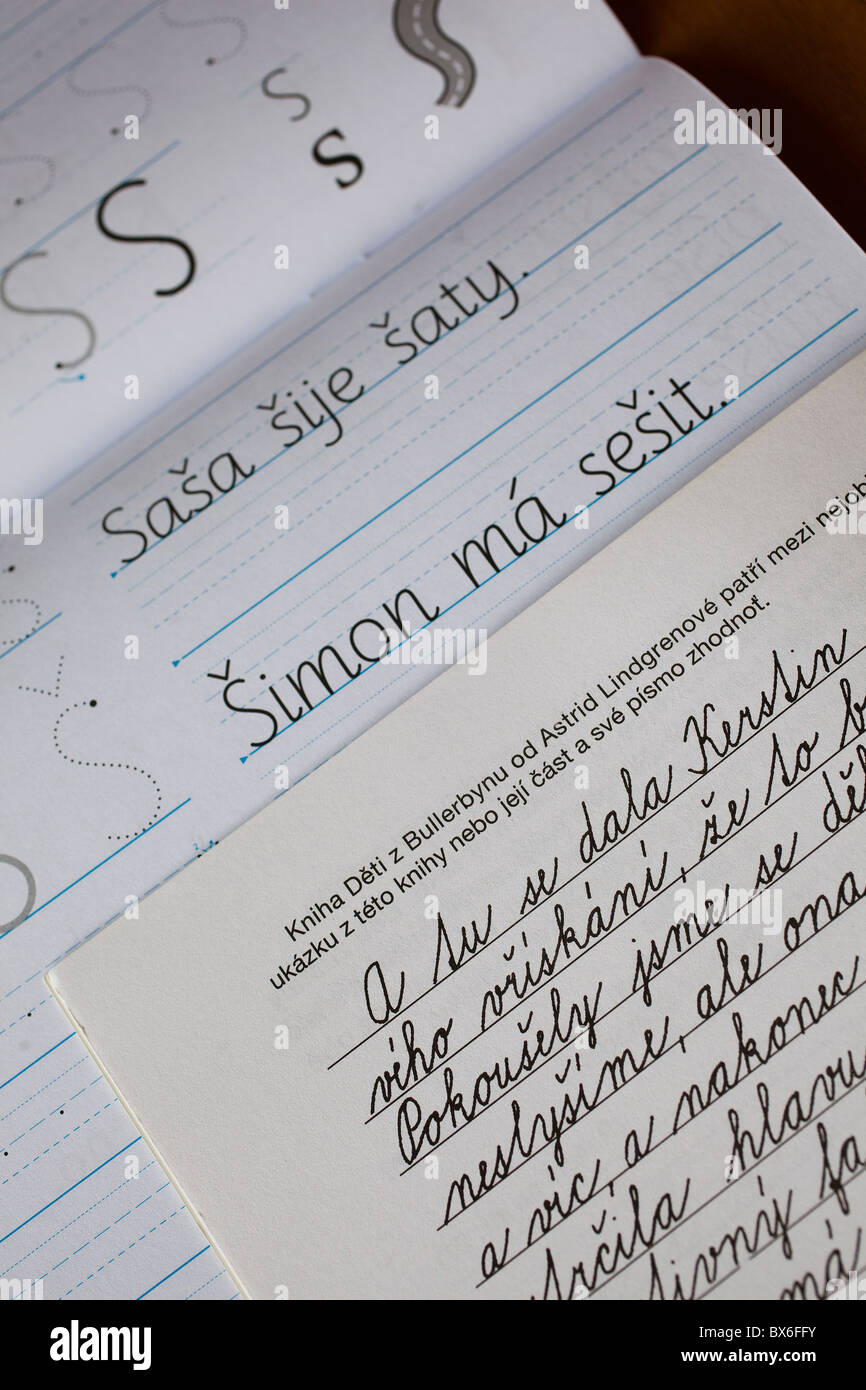 S s
S S s
Saša šije šaty.
Šimon má sešit.
Kniha Děti z Bullerbynu od Astrid Lindgrenové patří mezi
ukázku z této knihy nebo její část a své písmo zhodnoť.
A tu se dala Kerstin
vého vřískání, že to
Pokoušely jsme se
neslyšíme, ale ona
a víc, a nakonec
strčila hlavu
alamy
Image ID: BX6FFY
www.alamy.com